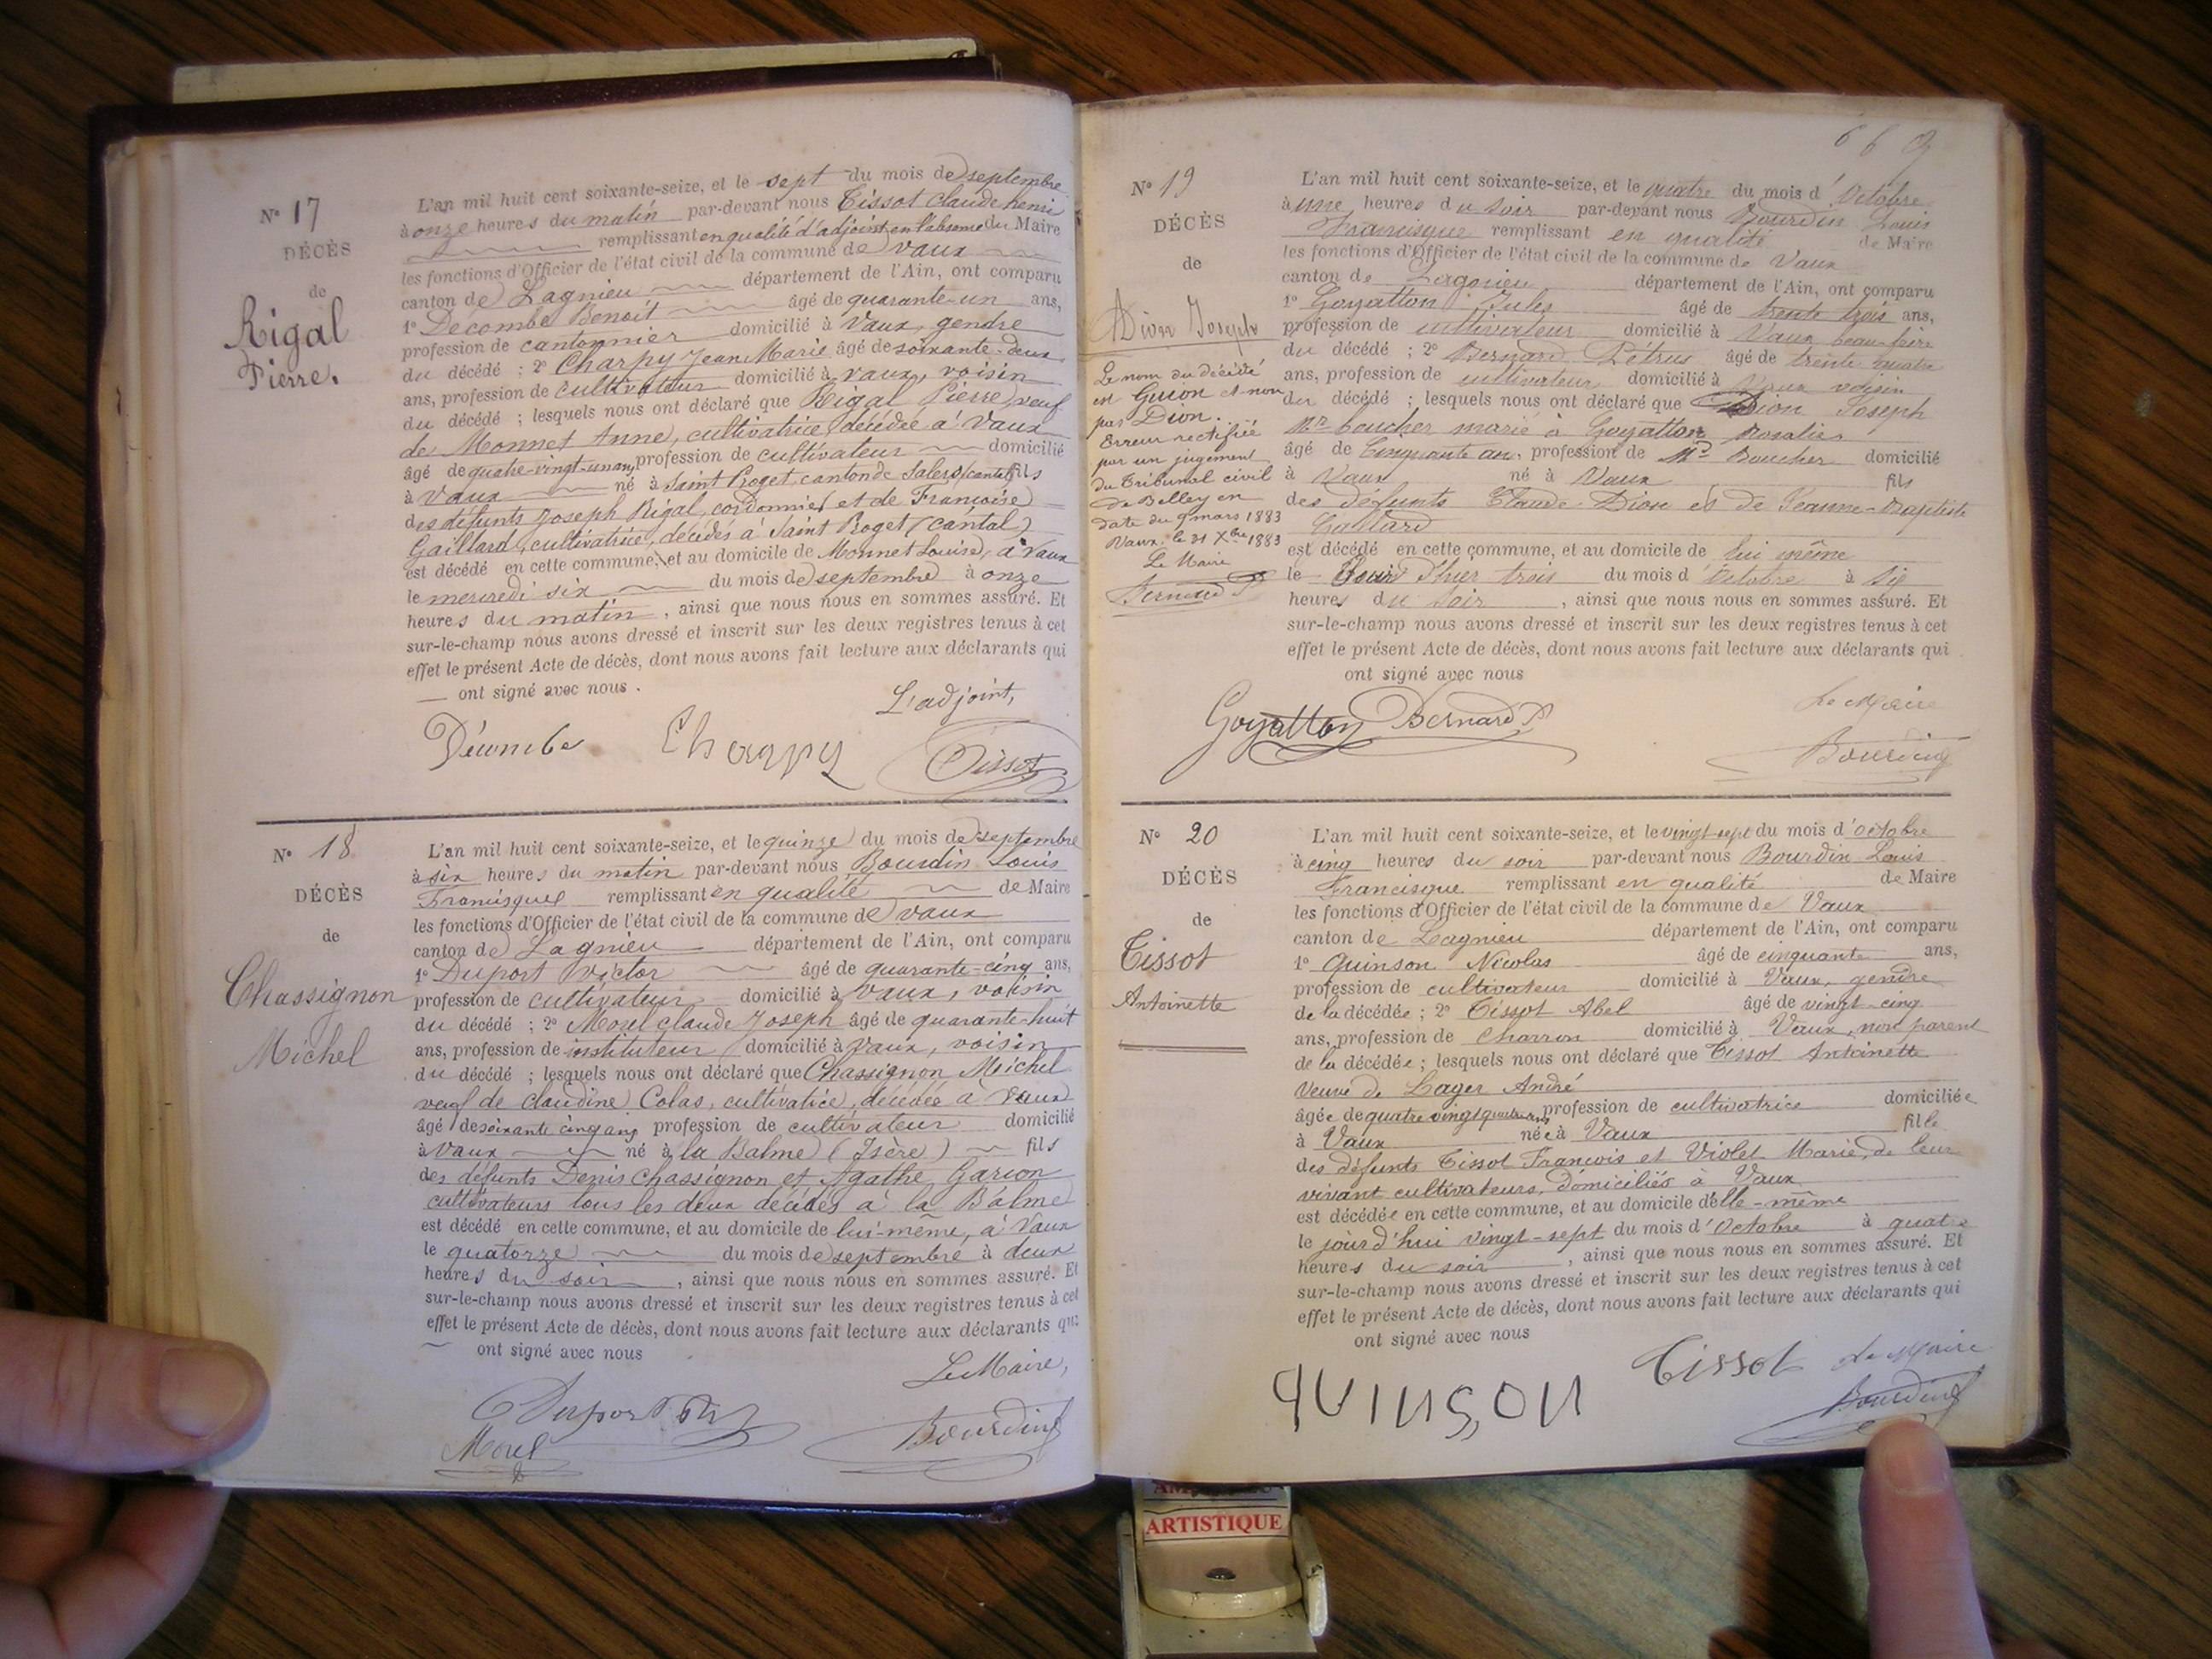 N° 17
DÉCÈS
de
Rigal
Pierre.
L'an mil huit cent soixante-seize, et le sept du mois de septembre
à onze heures du matin par-devant nous Tissot Claude henri
remplissant en qualité d'adjoint en l'absence du Maire
les fonctions d'Officier de l'état civil de la commune de Vaux
canton de Lagnieu département de l'Ain, ont comparu
1° Décombe Benoit âgé de quarante-un ans,
profession de cantonnier domicilié à Vaux, gendre
du décédé ; 2° Charpy Jean Marie âgé de soixante-deux
ans, profession de cultivateur domicilié à vaux, voisin
du décédé ; lesquels nous ont déclaré que Rigal Pierre, veuf
de Monnet Anne, cultivatrice, décédée à Vaux
âgé de quatre-vingt-un ans, profession de cultivateur domicilié
à Vaux né à Saint Roget, canton de Salers (cantal) fils
des défunts Joseph Rigal, cordonnier et de Françoise
Gaillard, cultivatrice, décédés à Saint Roget (cantal)
est décédé en cette commune, et au domicile de Monnet Louise, à Vaux
le mercredi six du mois de septembre à onze
heures du matin, ainsi que nous nous en sommes assuré. Et
sur-le-champ nous avons dressé et inscrit sur les deux registres tenus à cet
effet le présent Acte de décès, dont nous avons fait lecture aux déclarants qui
ont signé avec nous.
L'adjoint,
Décombe Charpy Tissot
N° 18
DÉCÈS
de
Chassignon
Michel
L'an mil huit cent soixante-seize, et le quinze du mois de septembre
à six heures du matin par-devant nous Bourdin Louis
Francisque remplissant en qualité de Maire
les fonctions d'Officier de l'état civil de la commune de Vaux
canton de Lagnieu département de l'Ain, ont comparu
1° Duport Victor âgé de quarante-cinq ans,
profession de cultivateur domicilié à Vaux, voisin
du décédé ; 2° Morel Claude Joseph âgé de quarante-huit
ans, profession de instituteur domicilié à Vaux, voisin
du décédé ; lesquels nous ont déclaré que Chassignon Michel
veuf de Claudine Colas, cultivatrice, décédée à Vaux
âgé de soixante cinq ans profession de cultivateur domicilié
à Vaux né à la Balme (Isère) fils
des défunts Denis Chassignon et Agathe Garion
cultivateurs tous les deux décédés à la Balme
est décédé en cette commune, et au domicile de lui-même, à Vaux
le quatorze du mois de septembre à deux
heures du soir, ainsi que nous nous en sommes assuré. Et
sur-le-champ nous avons dressé et inscrit sur les deux registres tenus à cet
effet le présent Acte de décès, dont nous avons fait lecture aux déclarants qui
ont signé avec nous
Le Maire,
Duport
Morel
Bourdin
N° 19
DÉCÈS
de
Dion Joseph
Le nom du décédé
est Guion et non
pas Dion.
Erreur rectifiée
par un jugement
du Tribunal civil
de Belley en
date du 9 mars 1883
Vaux, le 31 Xbre 1883
Le Maire
Bernard P
L'an mil huit cent soixante-seize, et le quatre du mois d'Octobre
à une heures du soir par-devant nous Bourdin Louis
Francisque remplissant en qualité de Maire
les fonctions d'Officier de l'état civil de la commune de Vaux
canton de Lagnieu département de l'Ain, ont comparu
1° Goyatton Jules âgé de trente trois ans,
profession de cultivateur domicilié à Vaux beau-frère
du décédé ; 2° Bernard Pétrus âgé de trente quatre
ans, profession de cultivateur domicilié à Vaux voisin
du décédé ; lesquels nous ont déclaré que Dion Joseph
Md boucher marié à Goyatton Rosalie
âgé de Cinquante an, profession de Md Boucher domicilié
à Vaux né à Vaux fils
des défunts Claude Dion et de Jeanne-Baptiste
Gallard
est décédé en cette commune, et au domicile de lui même
le jour d'hier trois du mois d'Octobre à six
heures du soir, ainsi que nous nous en sommes assuré. Et
sur-le-champ nous avons dressé et inscrit sur les deux registres tenus à cet
effet le présent Acte de décès, dont nous avons fait lecture aux déclarants qui
ont signé avec nous
Le Maire
Goyatton Bernard P Bourdin
N° 20
DÉCÈS
de
Tissot
Antoinette
L'an mil huit cent soixante-seize, et le vingt-sept du mois d'octobre
à cinq heures du soir par-devant nous Bourdin Louis
Francisque remplissant en qualité de Maire
les fonctions d'Officier de l'état civil de la commune de Vaux
canton de Lagnieu département de l'Ain, ont comparu
1° Quinson Nicolas âgé de cinquante ans,
profession de cultivateur domicilié à Vaux, gendre
de la décédée ; 2° Tissot Abel âgé de vingt-cinq
ans, profession de charron domicilié à Vaux, non parent
de la décédée ; lesquels nous ont déclaré que Tissot Antoinette
veuve de Lager André
âgée de quatre vingt quatre ans profession de cultivatrice domiciliée
à Vaux née à Vaux fille
des défunts Tissot François et Violet Marie, de leur
vivant cultivateurs, domiciliés à Vaux
est décédée en cette commune, et au domicile d'elle-même
le jour d'hui vingt-sept du mois d'Octobre à quatre
heures du soir, ainsi que nous nous en sommes assuré. Et
sur-le-champ nous avons dressé et inscrit sur les deux registres tenus à cet
effet le présent Acte de décès, dont nous avons fait lecture aux déclarants qui
ont signé avec nous
Tissot Le Maire
quinson Bourdin
ARTISTIQUE